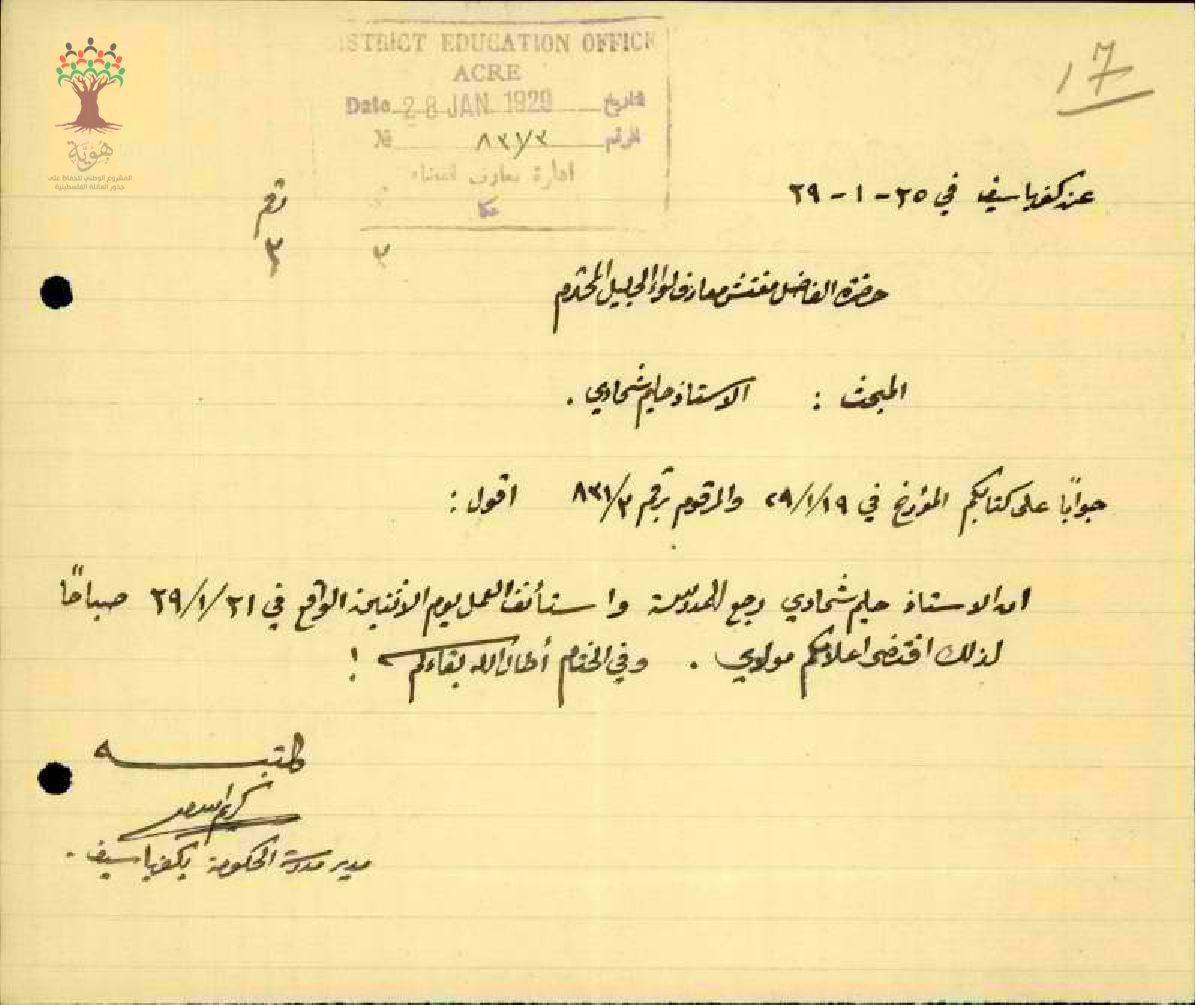 17
DISTRICT EDUCATION OFFICE
ACRE
Date 28 JAN. 1929 تاريخ
№ ٨٣١/٣ الرقم
ادارة معارف قضاء
عكا
هوية
المشروع الوطني للحفاظ على
جذور العائلة الفلسطينية
عن كفرياسيف في ٢٥ - ١ - ٢٩
رقم
٣
٣
حضرة الفاضل مفتش معارف لواء الجليل المحترم
المبحث : الاستاذ حليم شحادي .
جوابًا على كتابكم المؤرخ في ٢٩/١/١٩ والمرقوم برقم ٨٣١/٣ اقول :
ان الاستاذ حليم شحادي رجع للمدرسة واستأنف العمل يوم الاثنين الواقع في ٢٩/١/٢١ صباحًا
لذلك اقتضى اعلامكم مولاي . وفي الختام أطال الله بقاءكم !
كتبه
مدير مدرسة الحكومة بكفرياسيف .